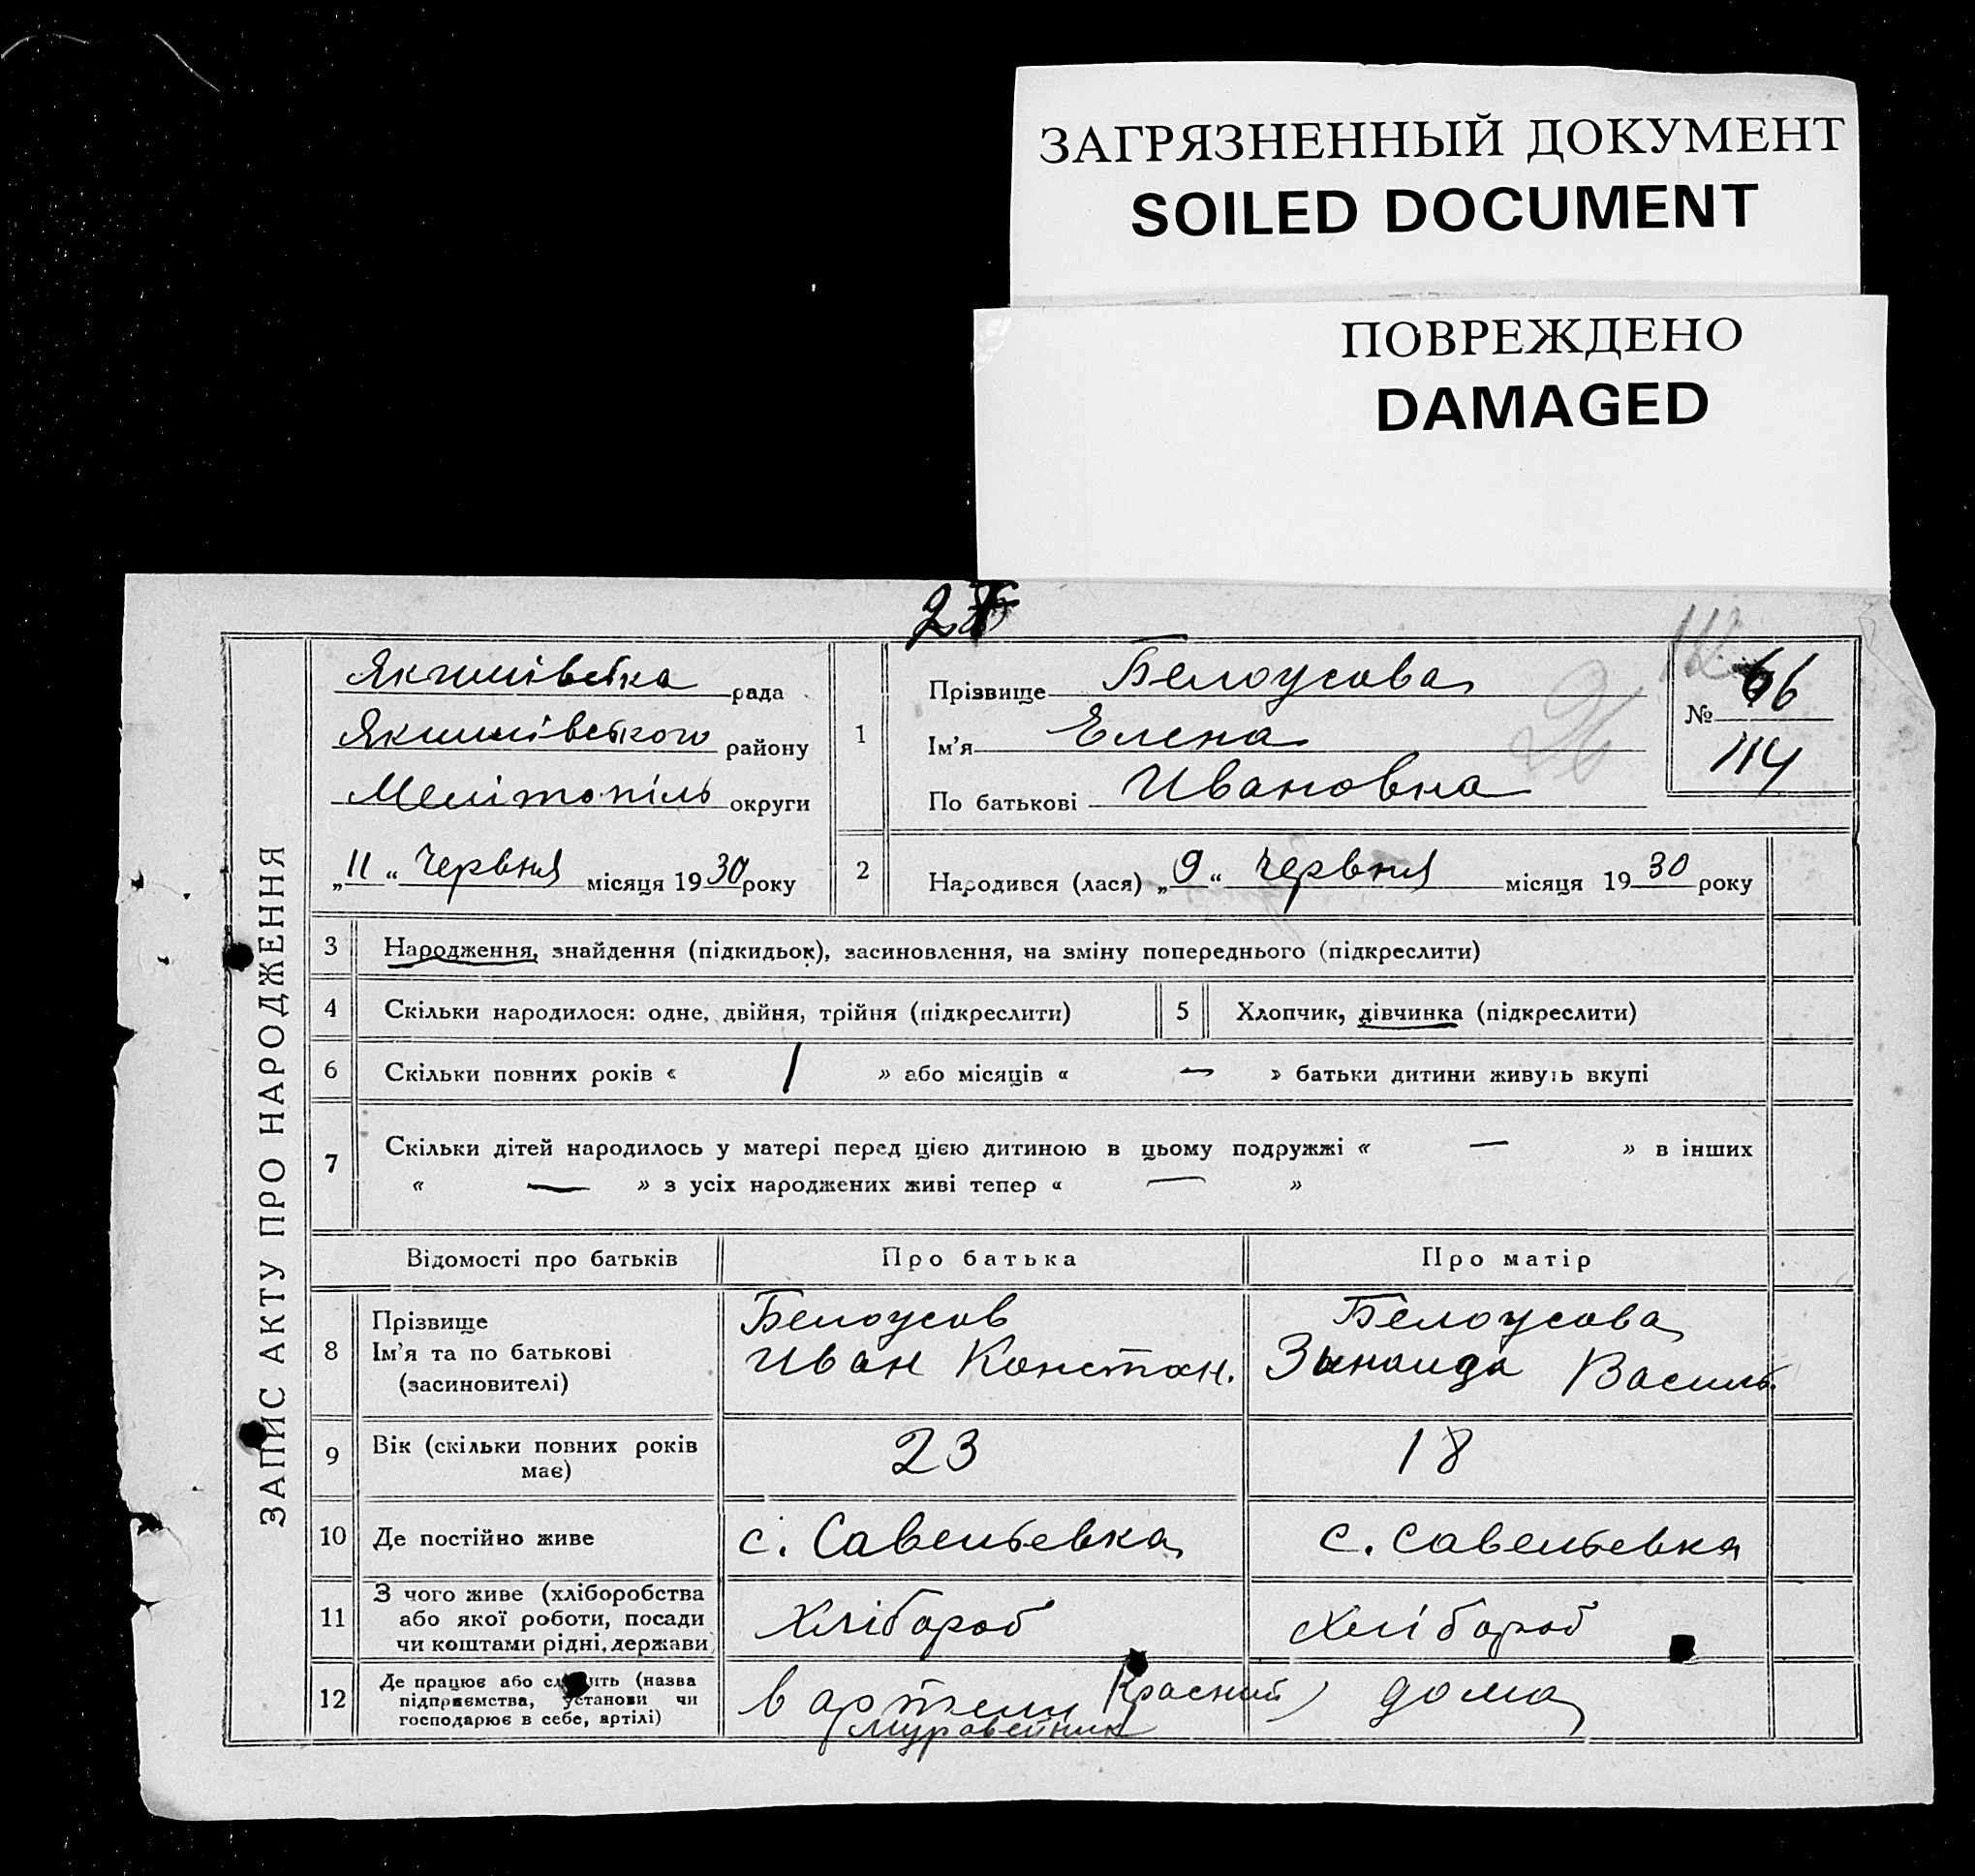 ЗАГРЯЗНЕННЫЙ ДОКУМЕНТ
SOILED DOCUMENT
ПОВРЕЖДЕНО
DAMAGED
ЗАПИС АКТУ ПРО НАРОДЖЕННЯ
Якимівська рада
Якимівського району
Мелітопіль округи
„11“ Червня місяця 1930 року
1
Прізвище Белоусова
Ім'я Елена
По батькові Ивановна
№ 66
114
2 Народився (лася) „9“ Червня місяця 1930 року
3 Народження, знайдення (підкидьок), засиновлення, на зміну попереднього (підкреслити)
4 Скільки народилося: одне, двійня, трійня (підкреслити) 5 Хлопчик, дівчинка (підкреслити)
6 Скільки повних років « 1 » або місяців « — » батьки дитини живуть вкупі
7 Скільки дітей народилось у матері перед цією дитиною в цьому подружжі « — » в інших
« — » з усіх народжених живі тепер « — »
Відомості про батьків Про батька Про матір
8 Прізвище Белоусов Белоусова
Ім'я та по батькові Иван Констан. Зинаида Василь.
(засиновителі)
9 Вік (скільки повних років 23 18
має)
10 Де постійно живе с. Савельевка с. Савельевка
11 З чого живе (хліборобства
або якої роботи, посади Хлібороб Хлібороб
чи коштами рідні, держави
12 Де працює або служить (назва
підприємства, установи чи в артели Красний дома
господарює в себе, артілі) Муравейник